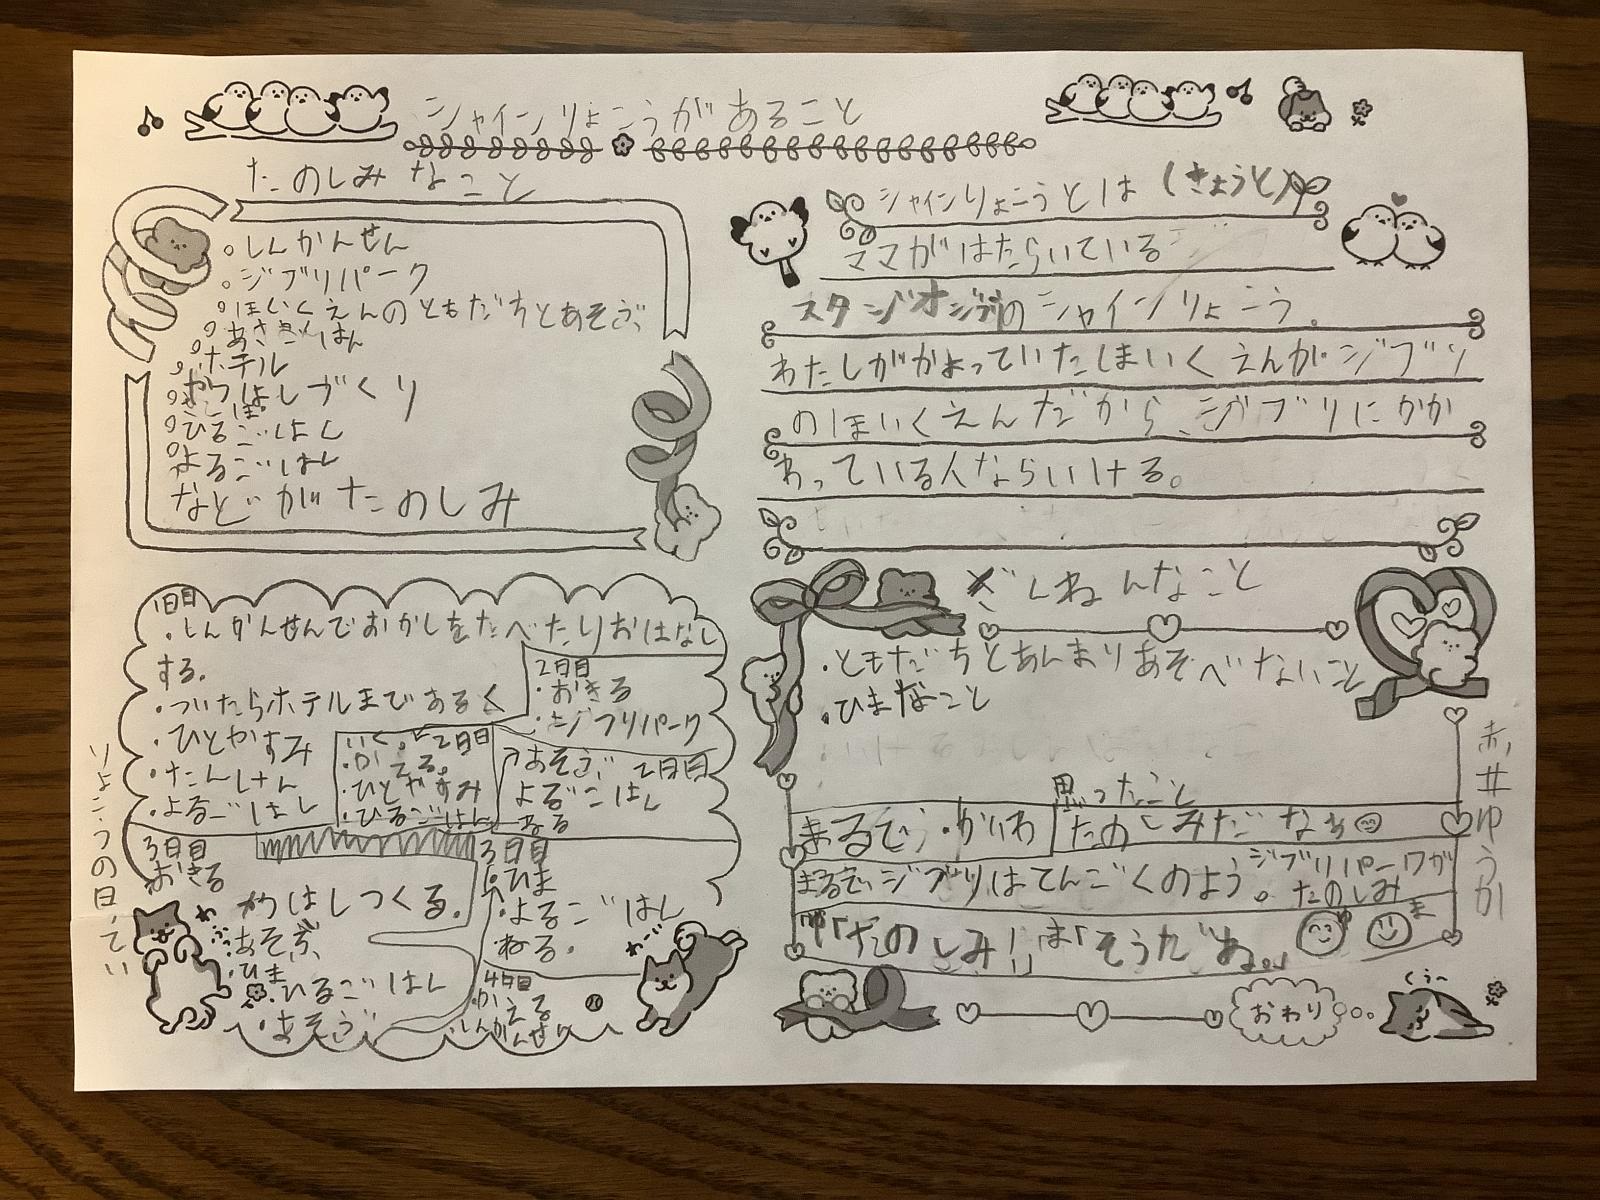 シャインりょこうがあること
たのしみなこと
。しんかんせん
。ジブリパーク
。ほいくえんのともだちとあそぶ
。あさごはん
。ホテル
。やつはしづくり
。さんぽ
。ひるごはん
。よるごはん
などがたのしみ
シャインりょこうとは(きょうと)
ママがはたらいている
スタジオジブリのシャインりょこう。
わたしがかよっていたほいくえんがジブリ
のほいくえんだから、ジブリにかか
わっている人ならいける。
ざんねんなこと
・ともだちとあんまりあそべないこと
・ひまなこと
1日目
・しんかんせんでおかしをたべたりおはなし
する。
・ついたらホテルまであるく
・ひとやすみ
・たんけん
・よるごはん
2日目
・おきる
・ジブリパーク
いく。2日目
・かえる。
・ひとやすみ
・ひるごはん
あそぶ 2日目
よるごはん
ねる
3日目
おきる
やつはしつくる。
・あそぶ
・ひま
・ひるごはん
・あそぶ
3日目
・ひま
・よるごはん
ねる。
4日目
・かえる
しんかんせん
りょこうの日てい
思ったこと
まるで・かいわ
たのしみだなぁ
まるでジブリはてんごくのよう。ジブリパークが
たのしみ
「たのしみ!」は「そうだね。」
赤井ゆうか
おわり
わーい
くぅ〜